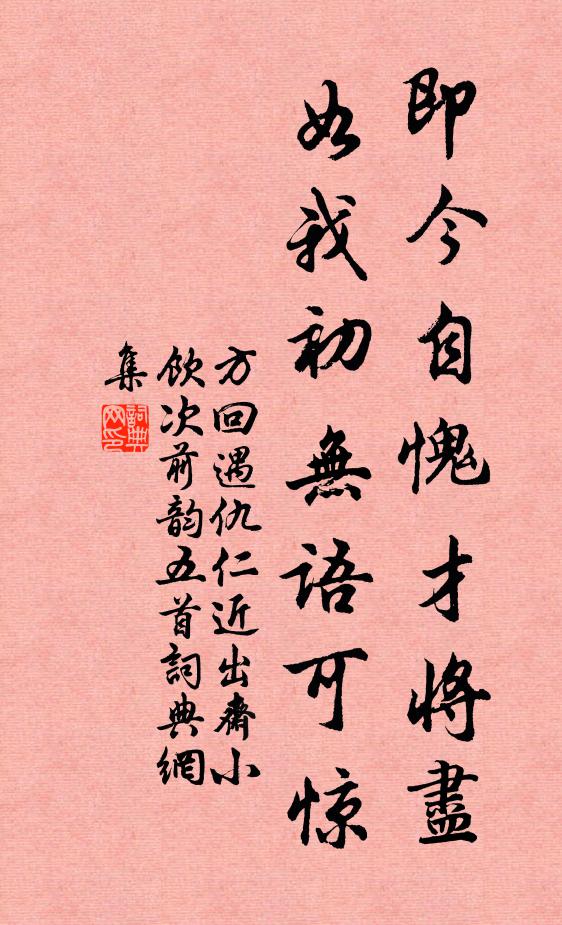 即今自愧才將盡
如我初無語可惊
方回遇仇仁近出齋小
飲次前韵五首詞典網
集
詞典
网印